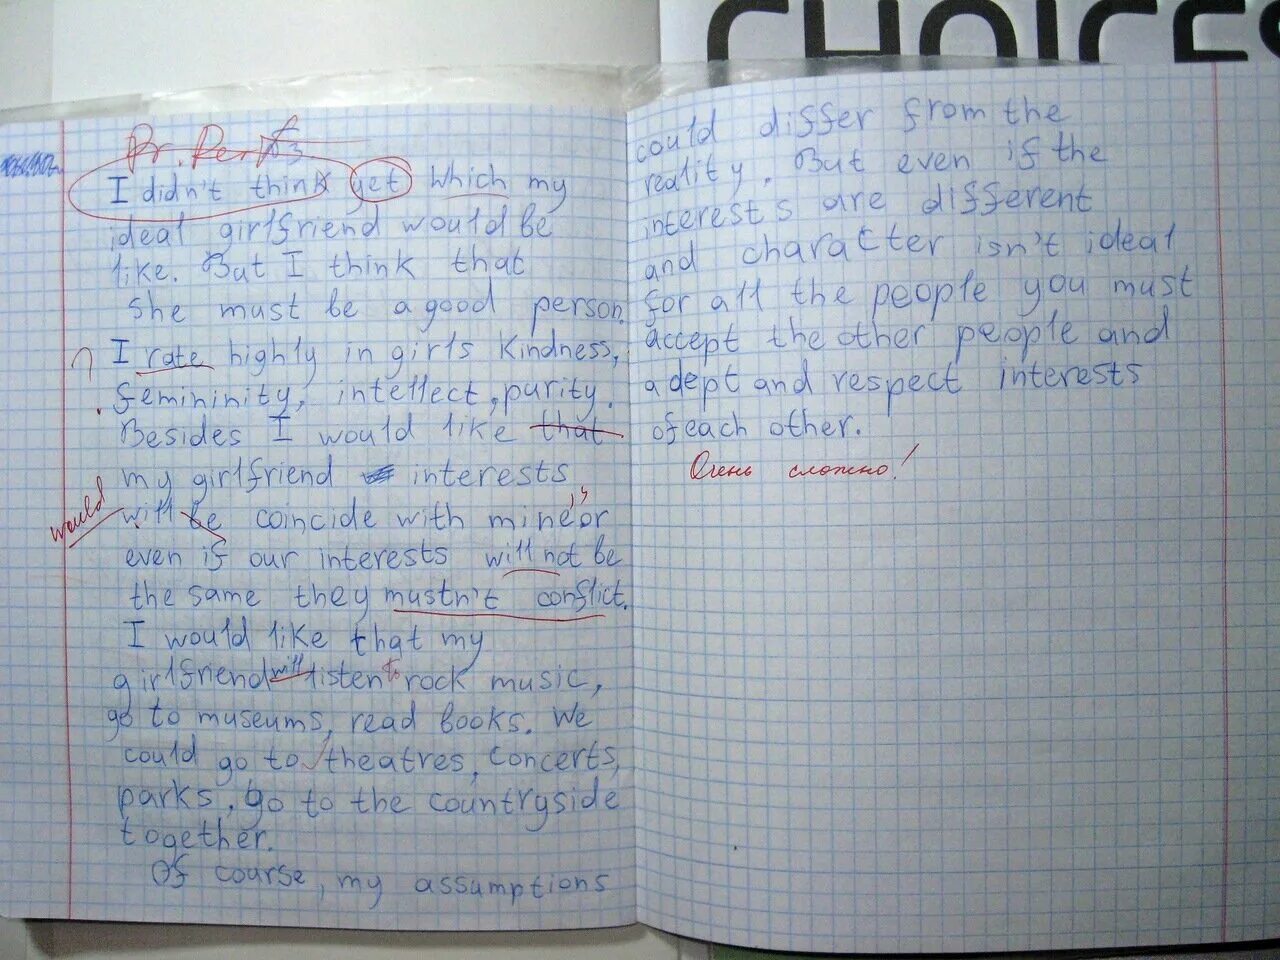 CHOICES
Pr. Perf
I didn't think yet which my
ideal girlfriend would be
like. But I think that
she must be a good person.
I rate highly in girls kindness,
femininity, intellect, purity.
Besides I would like that
my girlfriend interests
would
will be coincide with mine, or
even if our interests will not be
the same they mustn't conflict.
I would like that my
girlfriend will listen to rock music,
go to museums, read books. We
could go to theatres, concerts,
parks, go to the countryside
together.
Of course, my assumptions
could differ from the
reality. But even if the
interests are different
and character isn't ideal
for all the people you must
accept the other people and
adept and respect interests
of each other.
Очень сложно!